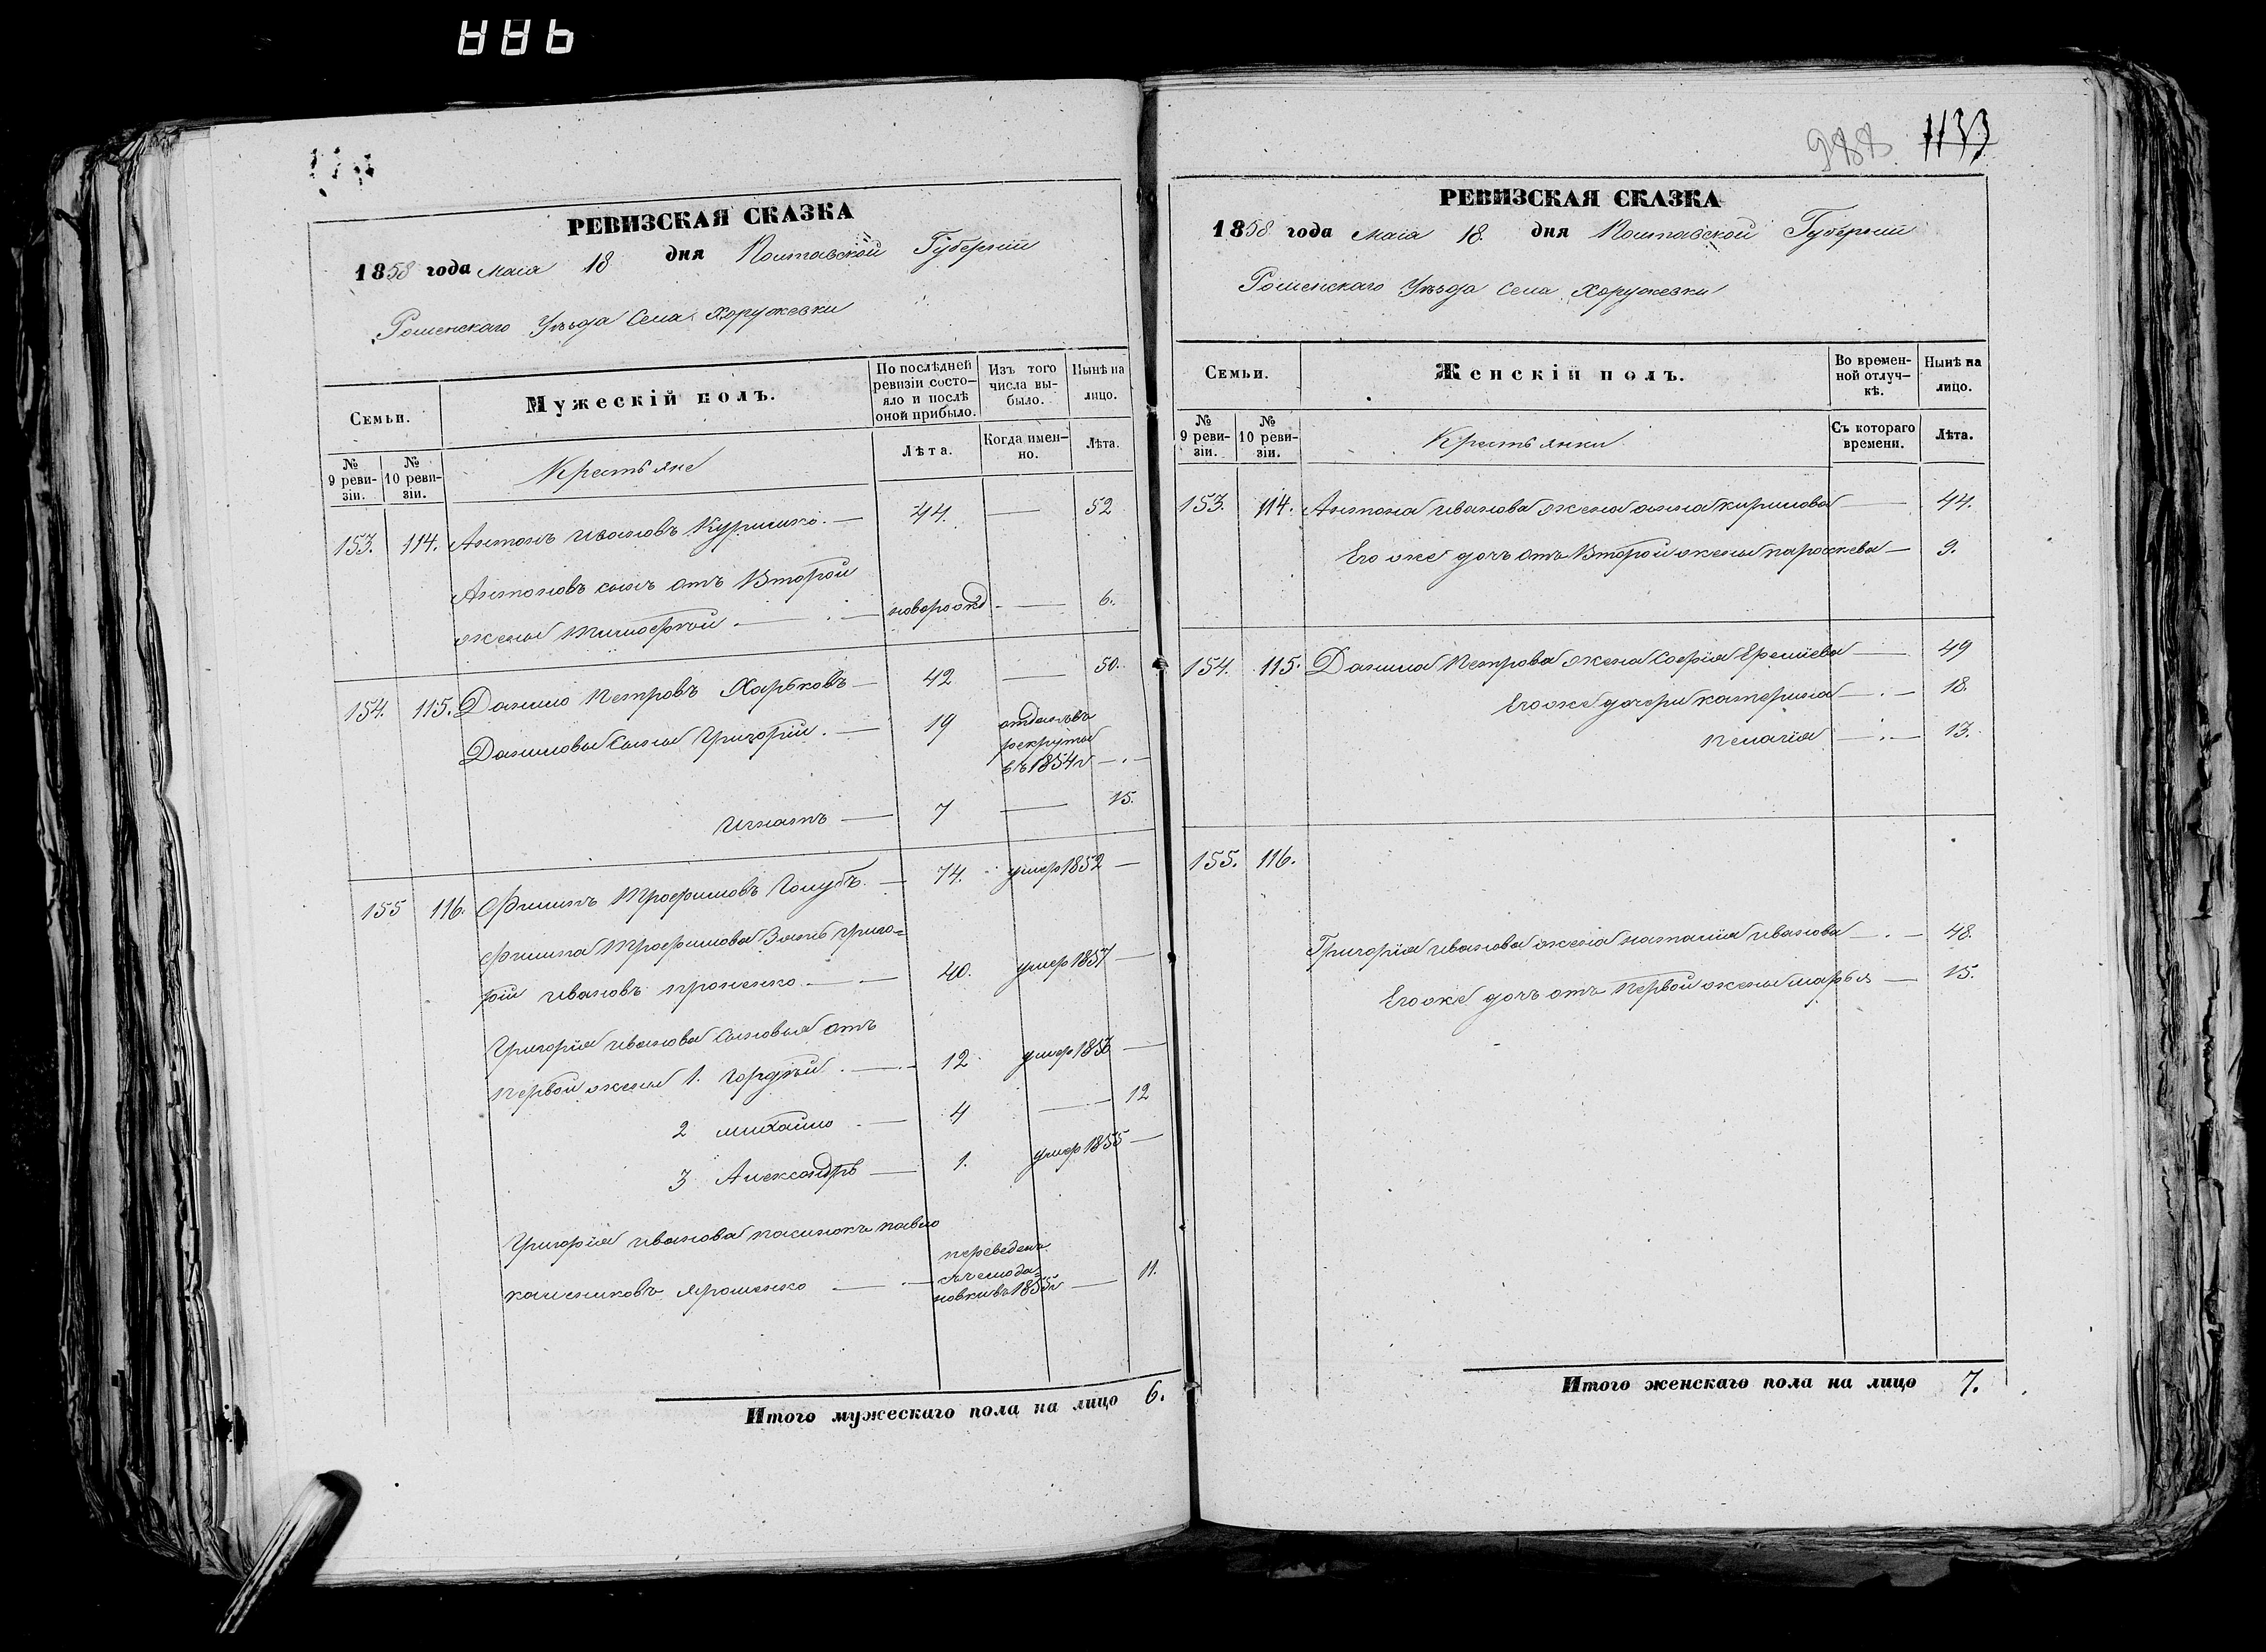 РЕВИЗСКАЯ СКАЗКА
1858 года маія 18 дня Полтавской Губерніи
Роменскаго Уѣзда Села Хоружевки
Семьи.
Мужескій полъ.
По послѣдней ревизіи состо-
яло и послѣ
оной прибыло.
Изъ того
числа вы-
было.
Нынѣ на
лицо.
№
9 реви-
зіи.
№
10 реви-
зіи.
Крестьяне
Лѣта.
Когда имен-
но.
Лѣта.
153. 114. Антонъ Ивановъ Курилко. — 44. — 52
Антоновъ сынъ отъ Второй
жены Тимофтій — новорожд — 6.
154. 115. Данило Петровъ Харьковъ — 42 — 50.
Даниловы Сыны Григорій. — 19 отданъ въ
рекруты
въ 1854 г —
Игнатъ — 7 — 15.
155 116. Филипъ Трофимовъ Голубъ. — 74. умер 1852 —
Филипа Трофимова Зять Григо=
рій Ивановъ — 40. умер 1857 —
Григорія Иванова Сыновья отъ
первой жены 1. Гордѣй. — 12 умер 1856 —
2 михайло — 4 — 12
3 Александръ — 1. умер 1855 —
Григорія Иванова пасинокъ павло
Ярошенко — переведенъ
1855 г — 11.
Итого мужескаго пола на лицо 6.
988 1133
РЕВИЗСКАЯ СКАЗКА
1858 года маія 18. дня Полтавской Губерніи
Роменскаго Уѣзда Села Хоружевки
Семьи.
Женскій полъ.
Во времен-
ной отлуч-
кѣ.
Нынѣ на
лицо.
№
9 реви-
зіи.
№
10 реви-
зіи.
Крестьянки
Съ котораго
времени.
Лѣта.
153. 114. Антона Иванова жена анна кирилова — 44.
Его же дочь отъ Второй жены параскева — 9.
154. 115. Данила Петрова жена Софія Еремѣева — 49
Его же дочери катерина — 18.
пелагія — 13.
155. 116.
Григорія Иванова жена наталія Иванова — 48.
Его же дочь отъ первой жены марья — 15.
Итого женскаго пола на лицо 7.